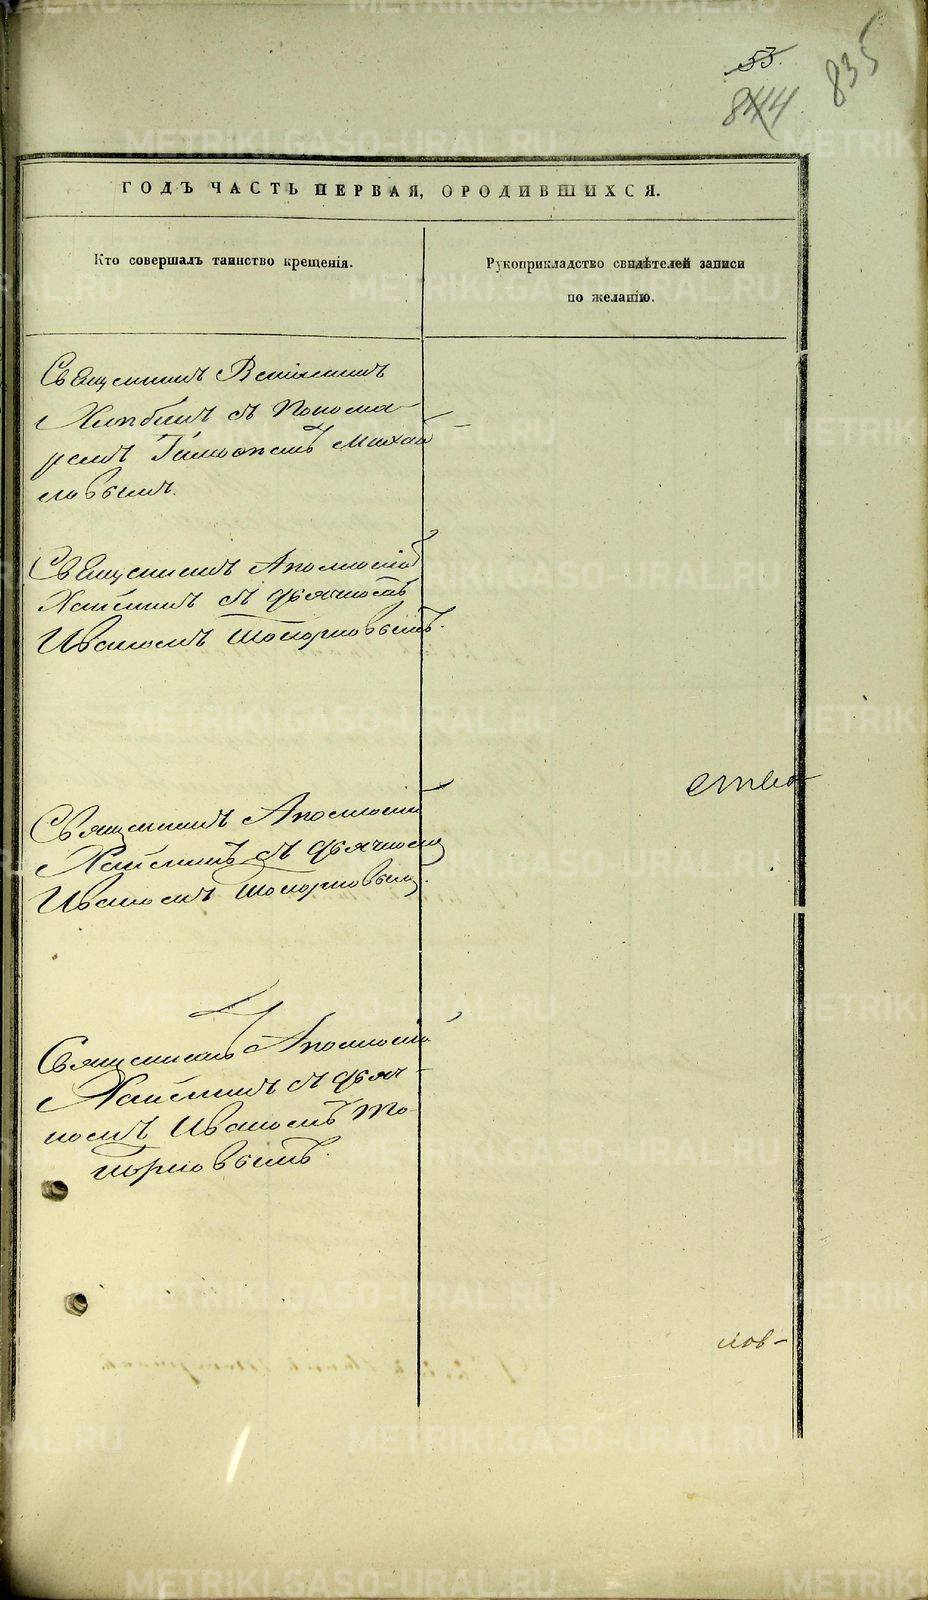 53.
844
835
ГОДЪ ЧАСТЬ ПЕРВАЯ, ОРОДИВШИХСЯ.
Кто совершалъ таинство крещенія.
Рукоприкладство свидѣтелей записи
по желанію.
Священникъ
съ Понома-
ремъ Тимофеемъ Михай
ловымъ.
Священникъ Аполлоній
съ дьячкомъ
Иваномъ Топорковымъ.
ство-
Священникъ Аполлоній
съ дьячкомъ
Иваномъ Топорковымъ.
Священникъ Аполлоній
съ дьяч-
комъ Иваномъ То-
порковымъ.
лов-
METRIKI.GASO-URAL.RU